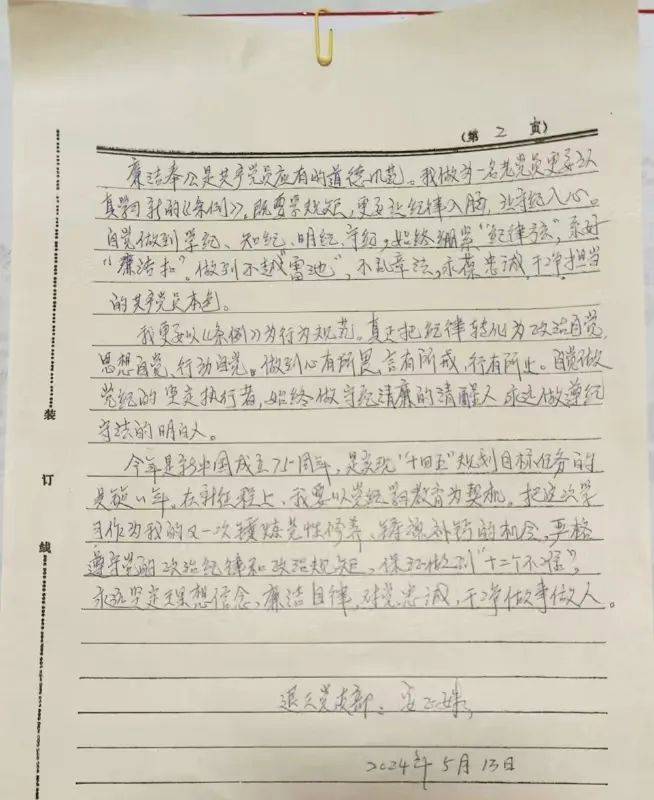 (第 2 页)
廉洁奉公是共产党员应有的道德风范。我做为一名老党员更要认
真学习新的《条例》,既要学规矩,更要让纪律入脑,让守纪入心。
自觉做到学纪、知纪、明纪、守纪,始终绷紧"纪律弦",系好
"廉洁扣"。做到不越"雷池",不乱章法,永葆忠诚、干净、担当
的共产党员本色。
我更要以《条例》为行为规范。真正把纪律转化为政治自觉、
思想自觉、行动自觉。做到心有所畏,言有所戒,行有所止。自觉做
党纪的坚定执行者,始终做守纪清廉的清醒人 永远做遵纪
守法的明白人。
今年是新中国成立75周年,是实现"十四五"规划目标任务的
关键一年。在新征程上,我要以党纪学习教育为契机。把这次学
习作为我的又一次锤炼党性修养、铸魂补钙的机会,严格
遵守党的政治纪律和政治规矩,保证做到"十二个不准",
永远坚定理想信念,廉洁自律,对党忠诚,干净做事做人。
退休党支部:
2024年5月13日
装
订
线